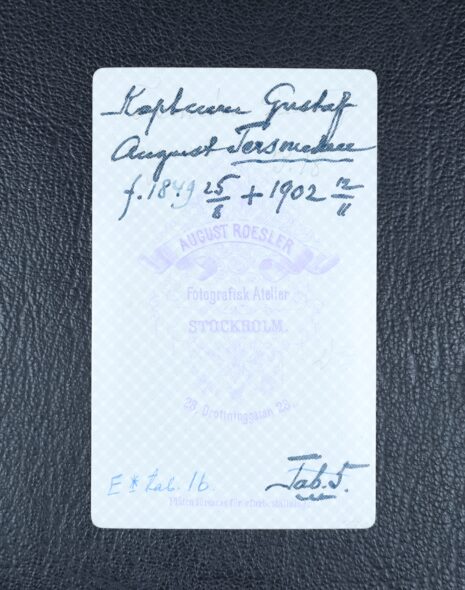 Kaptenen Gustaf
August Tersmeden
f. 1849 25/8 + 1902 12/11
AUGUST ROESLER
Fotografisk Atelier
STOCKHOLM.
28. Drottninggatan 28.
E * Tab. 16.
Tab. 5.
Plåten förvaras för efterbeställning.